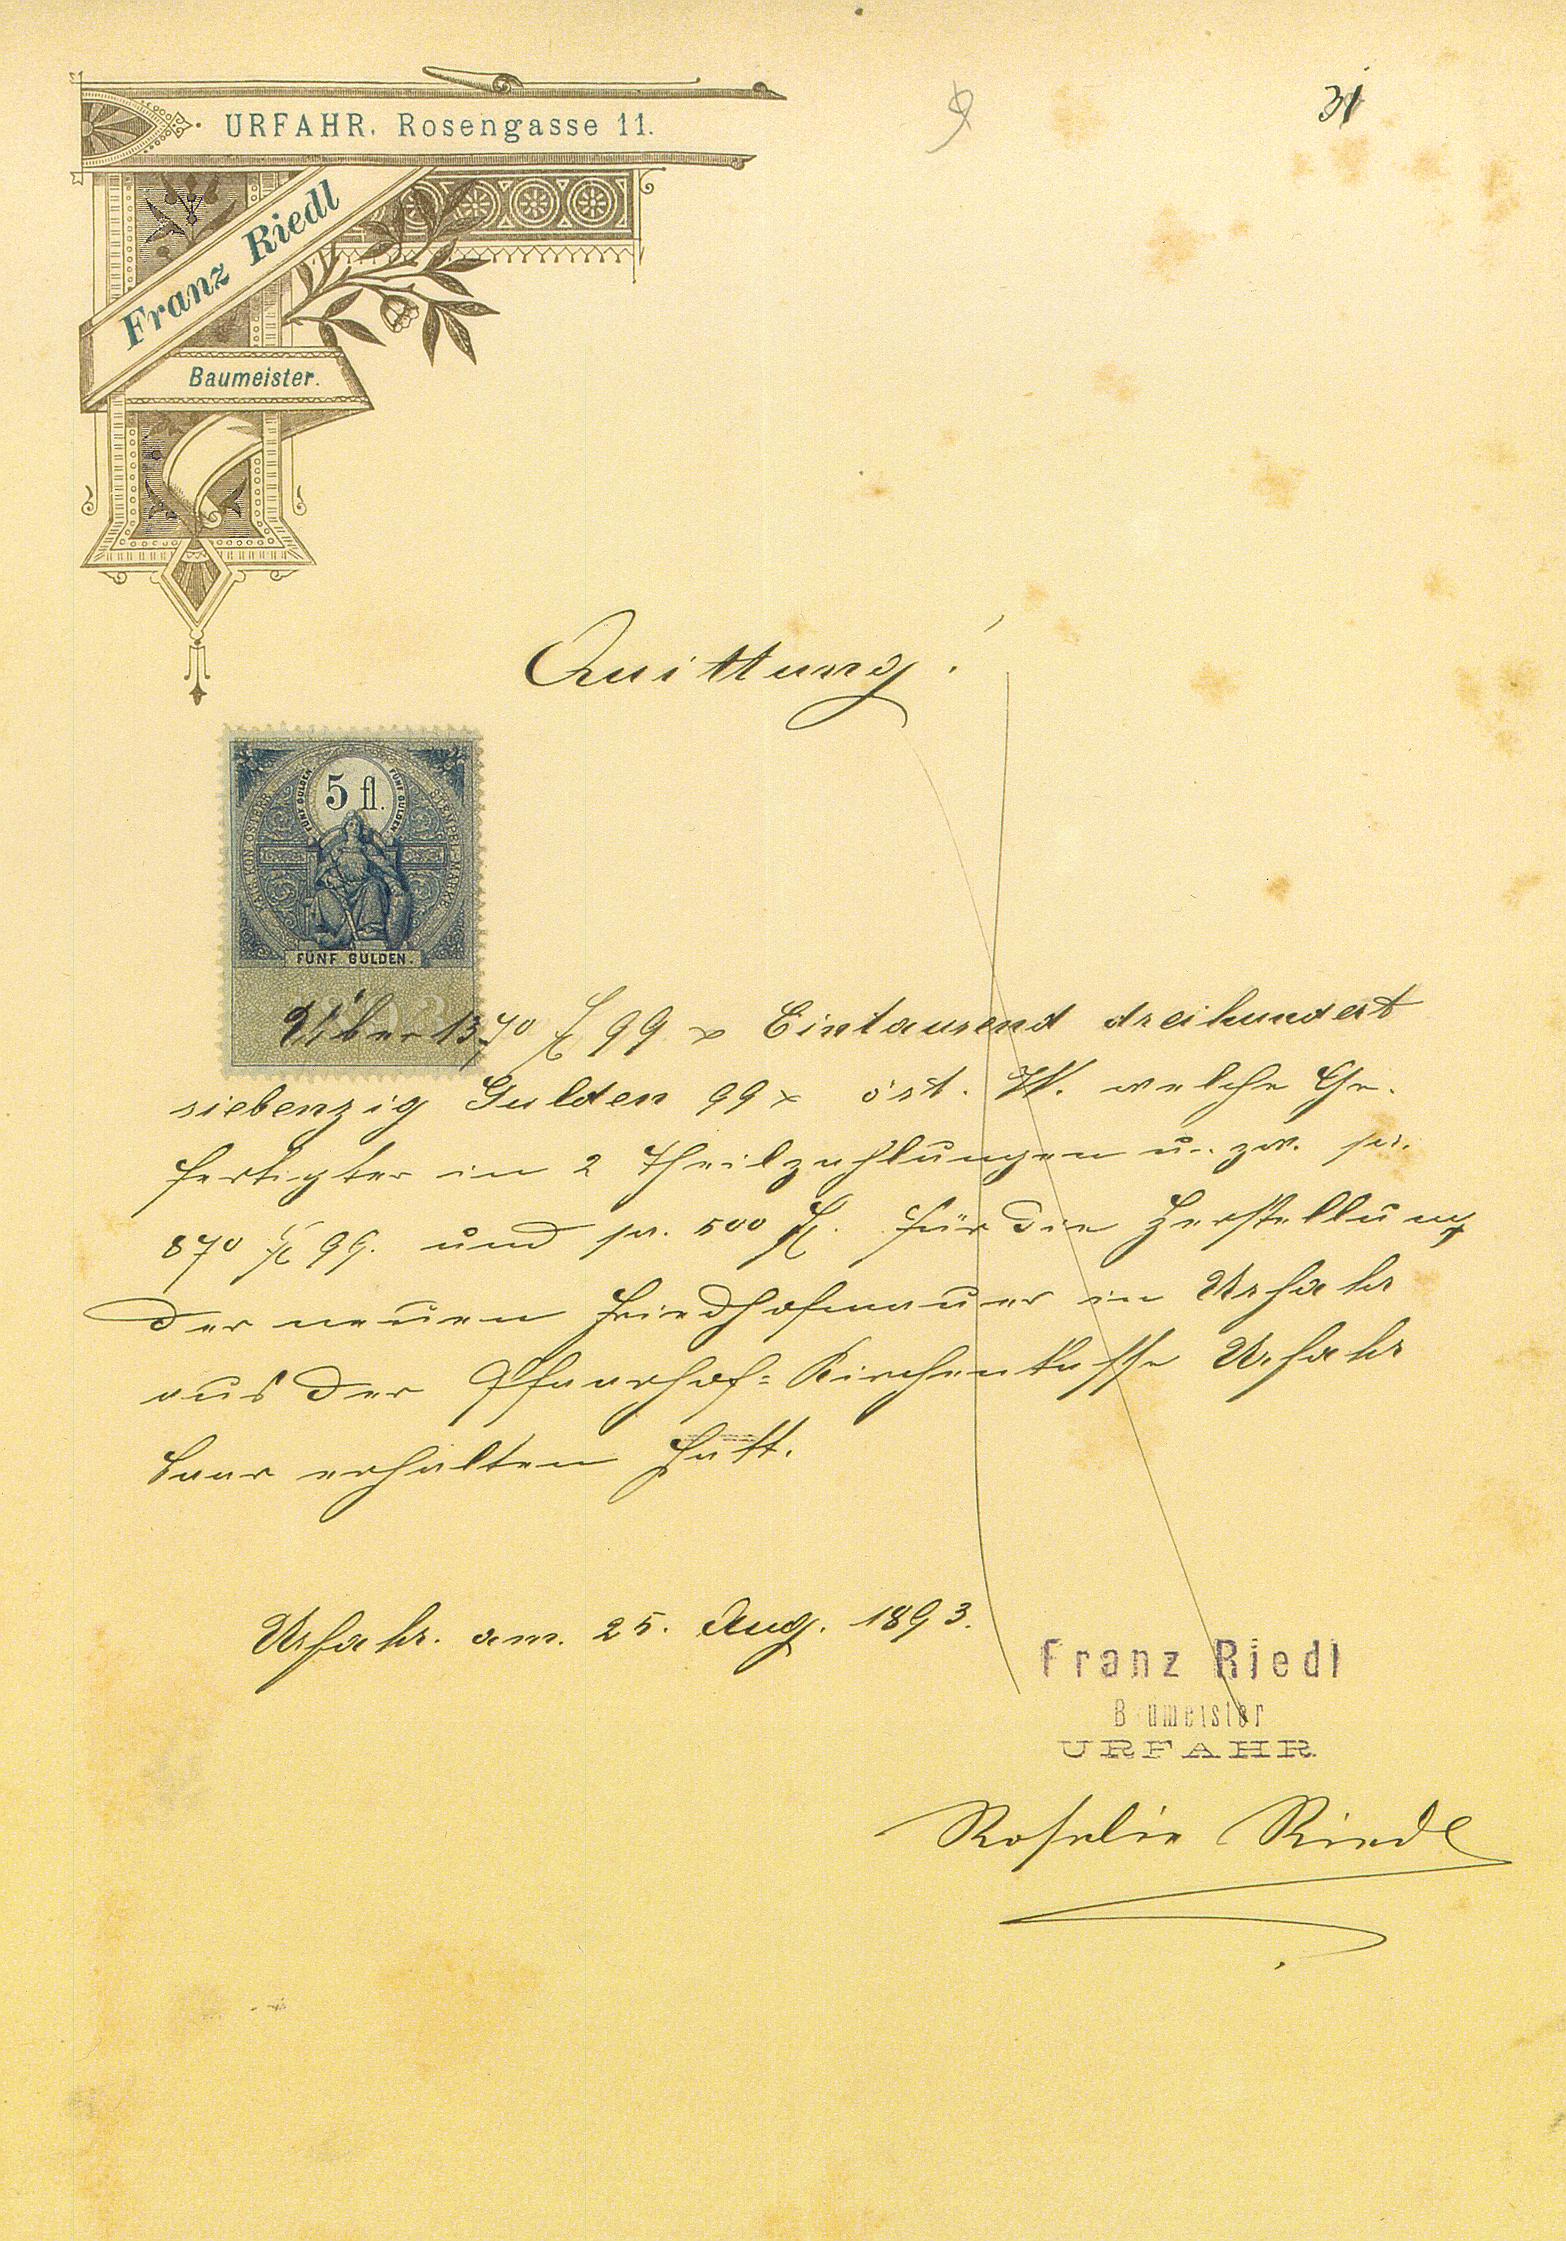 31
URFAHR, Rosengasse 11.
Franz Riedl
Baumeister.
Quittung!
5 fl.
FÜNF GULDEN
FÜNF GULDEN
STEMPEL-MARKE
FÜNF GULDEN.
Über 1370 f 99 x Eintausend dreihundert
siebenzig Gulden 99 x öst. W. welche Ge-
fertigter in 2 Theilzahlungen u. zw. pr.
870 f 99. und pr. 500 f. für die Herstellung
der neuen Friedhofmauer in Urfahr
aus der Pfarrhof-Kirchenkasse Urfahr
baar erhalten hatt.
Urfahr. am. 25. Aug. 1893.
Franz Riedl
Baumeister
URFAHR.
Rosalie Riedl